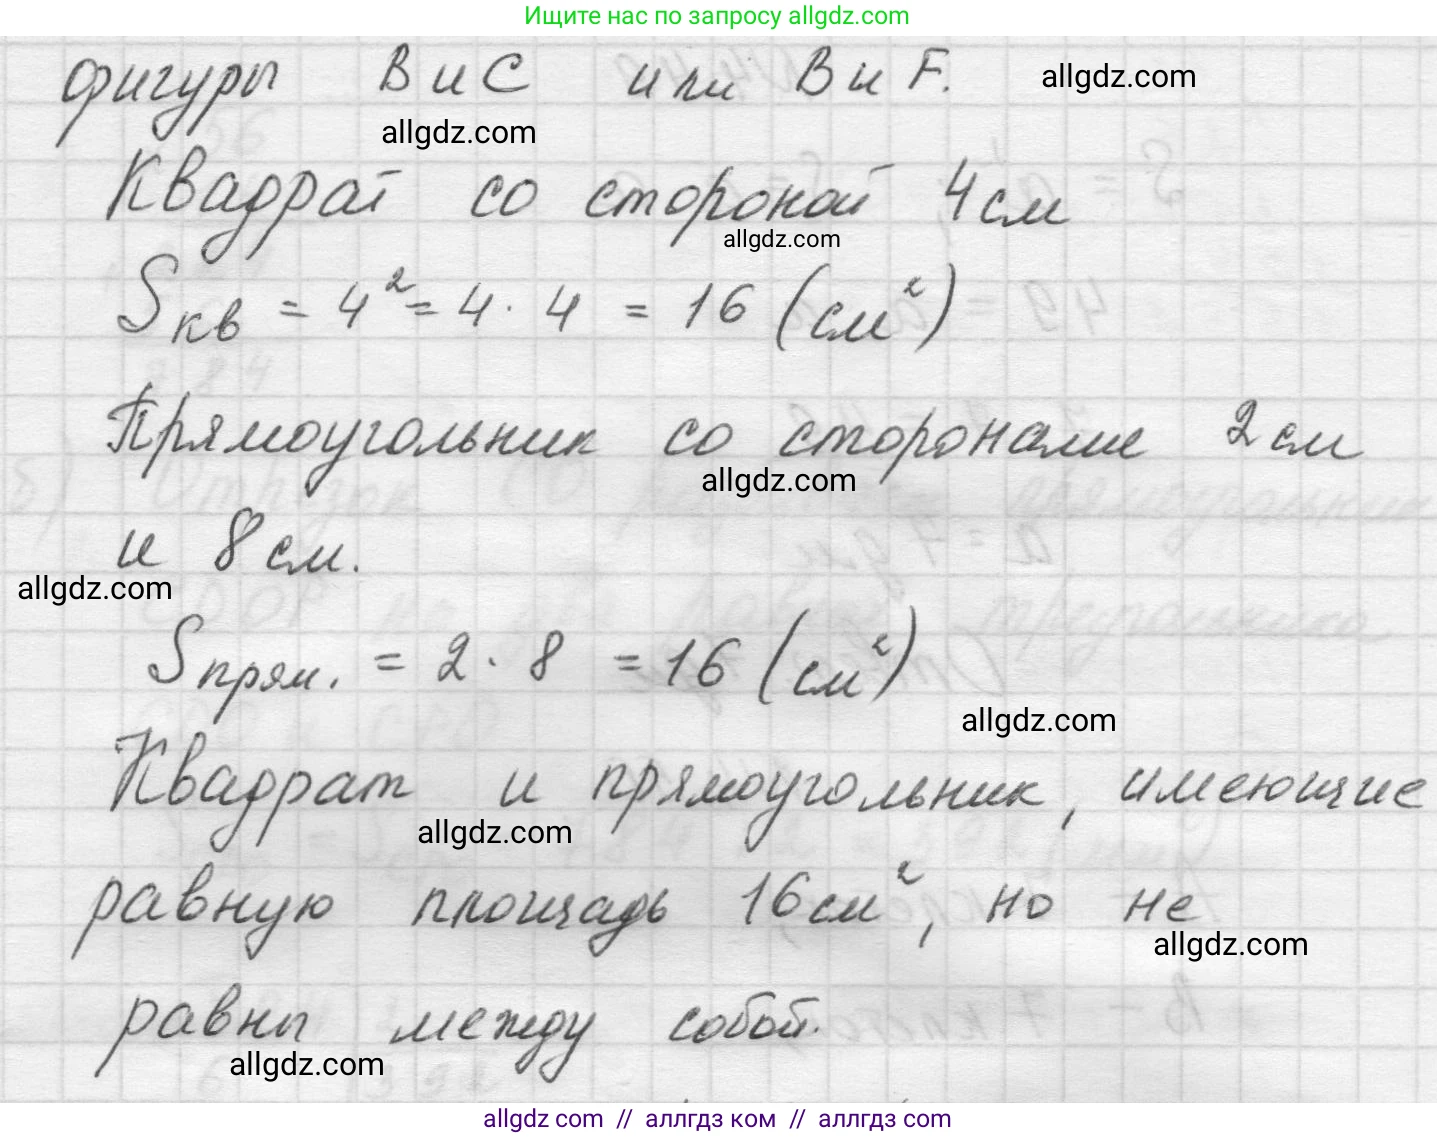 Ищите нас по запросу allgdz.com
фигуры B и C или B и F.
allgdz.com
allgdz.com
Квадрат со стороной 4 см
allgdz.com
Sкв = 4² = 4 · 4 = 16 (см²)
Прямоугольник со сторонами 2 см
allgdz.com
и 8 см.
allgdz.com
Sпрям. = 2 · 8 = 16 (см²)
allgdz.com
Квадрат и прямоугольник, имеющие
allgdz.com
равную площадь 16 см², но не
allgdz.com
равны между собой.
allgdz.com
allgdz.com // аллгдз ком // аллгдз com